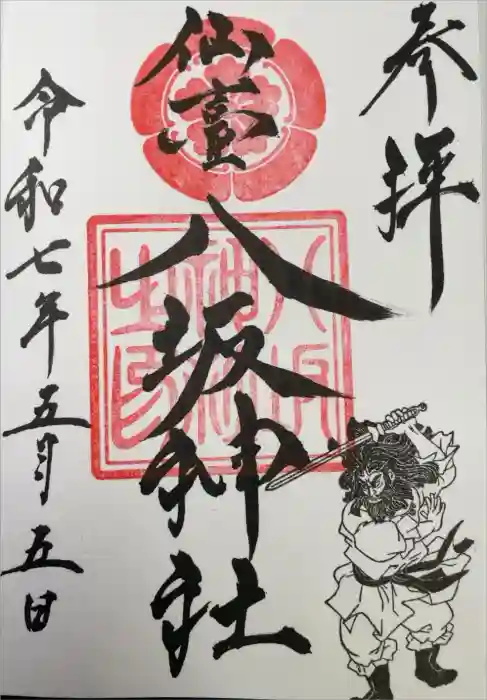 参拝
仙臺
八坂神社
令和七年五月五日
八坂
神社
之印